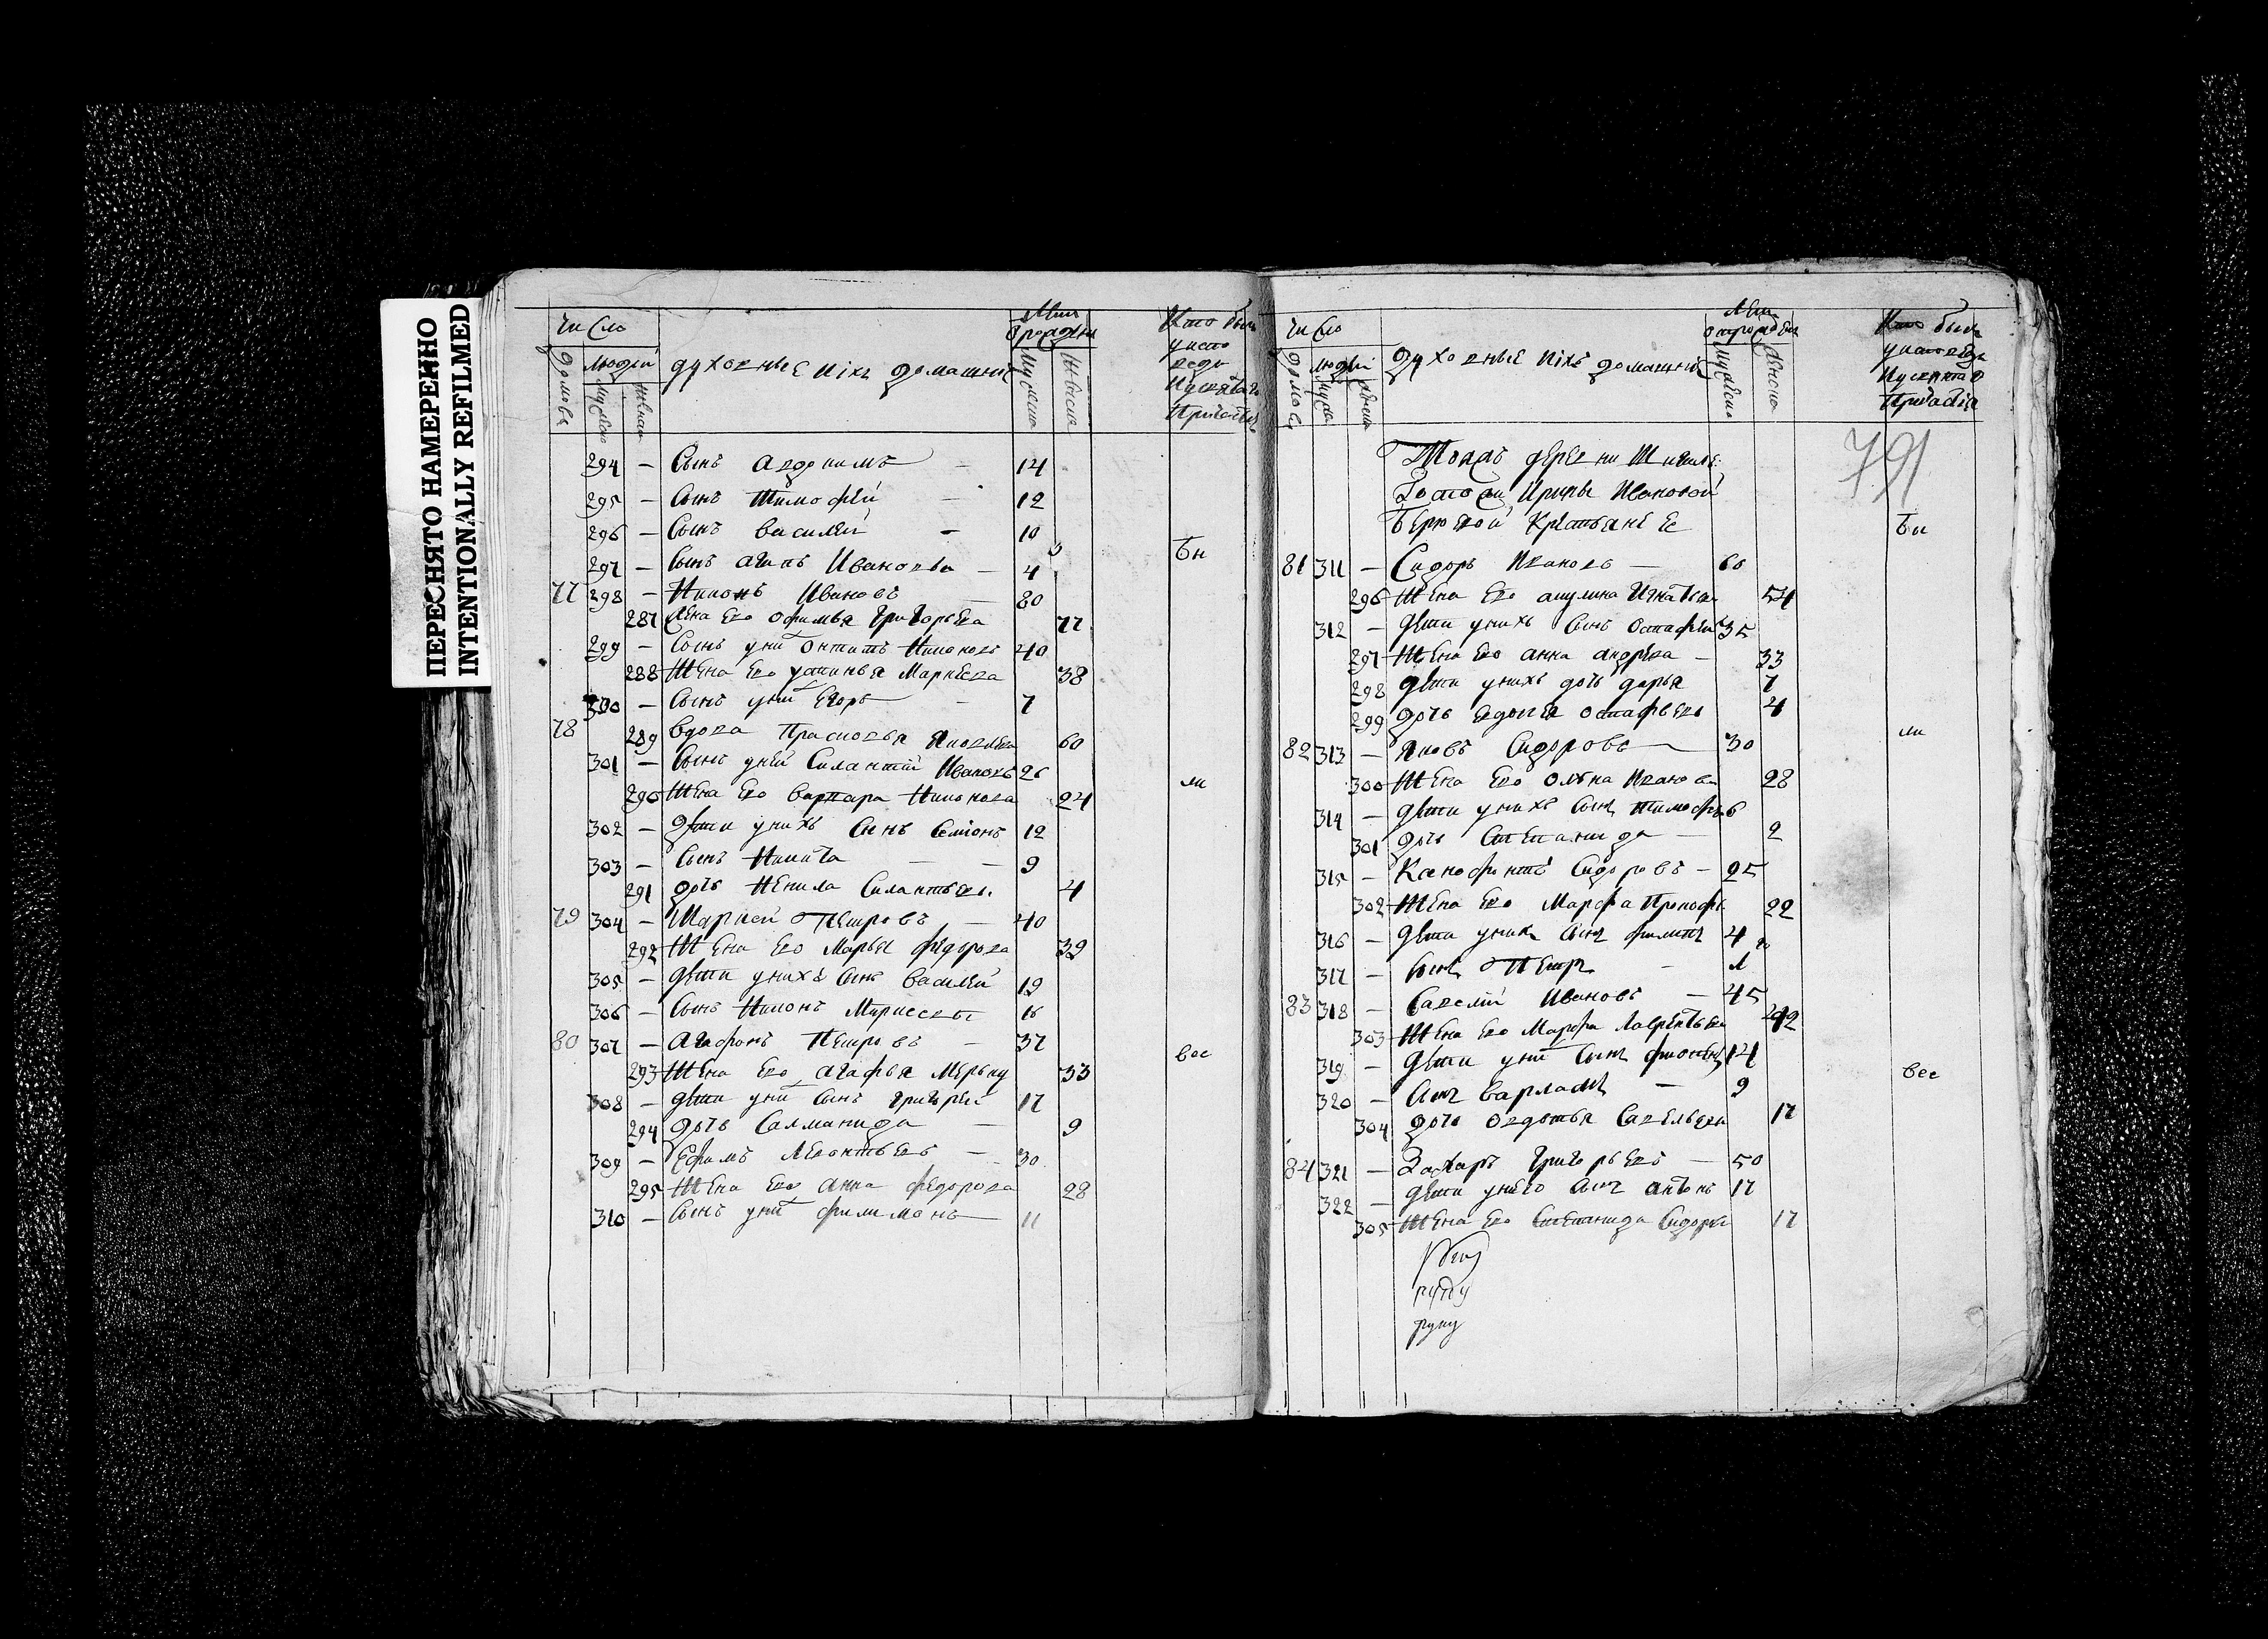 ПЕРЕСНЯТО НАМЕРЕННО
INTENTIONALLY REFILMED
число
домовъ
людей
мужеска
женска
духовные и ихъ домашнiе
Лета от рожденiя
мужеска
женска
Кто былъ у исповеди и у святаго причастiя
294 — Сынъ Авдокимъ — 14
295 — Сынъ Тимофей — 12
296 — Сынъ Василей — 10
Бы
297 — Сынъ Агапъ Ивановы — 4
77 298 — Никонъ Ивановъ — 80
287 Жена Ево Офимья Григорьева 77
299 — Сынъ у ни Онтипъ Никоновъ 40
288 Жена Ево Устинья Маркеева 38
300 — Сынъ у ни Егоръ — 7
78 289 Вдова Прасковья Яковлева 60
301 — Сынъ у ней Силантiй Ивановъ 26
290 Жена Ево Варвара Никонова 24
ли
302 — Дети у нихъ Сынъ Семiонъ 12
303 — Сынъ Никита — 9
291 дочь Ненила Силантьев. 4
79 304 — Маркей Петровъ — 40
292 Жена Ево Марья Федорова 39
305 — Дети у нихъ Сынъ Василей 19
306 — Сынъ Никонъ Маркеевы 16
80 307 — Агафонъ Петровъ — 37
293 Жена Ево Агафья Мерку 33
все
308 — дети у ни Сынъ Григорей 17
294 дочь Саламанида — 9
309 — Ефимъ Леонтьевъ — 30
295 Жена Ево Анна Федорова 28
310 — Сынъ у ни Филимонъ 11
число
домовъ
людей
духовные и ихъ домашнiе
Лета от рожденiя
мужеска
женска
Кто былъ у исповеди и у святаго причастiя
791
Тоежъ деревни
Госпожи Ирины Ивановой
Крестьяне Ее
Бы
81 311 — Сидоръ Ивановъ — 60
296 Жена Ево Акулина Игнатьева 54
312 — Дети у нихъ Сынъ Остафей 35
297 Жена Ево Анна Андрева — 33
298 Дети у нихъ дочь Дарья 7
299 дочь Евдокея Остафьевы 4
82 313 — Яковъ Сидоровъ — 30
ли
300 Жена Ево Олена Иванова 28
314 — Дети у нихъ Сынъ Тимофей 6
301 дочь Степанида — 2
315 — Ксенофонтъ Сидоровъ — 25
302 Жена Ево Марфа Прокофь 22
316 — Дети у нихъ Сынъ Филипъ 4
317 — Сынъ Петръ — 1
83 318 — Савелiй Ивановъ — 45
303 Жена Ево Марфа Лаврентьева 42
319 — Дети у ни Сынъ 14
все
320 — Сынъ Варламъ — 9
304 дочь Овдотья Савельевы 17
84 321 — Захаръ Григорьевъ — 50
322 — Дети у него Сынъ Антонъ 17
305 Жена Ево Степанида Сидорва 17
руку